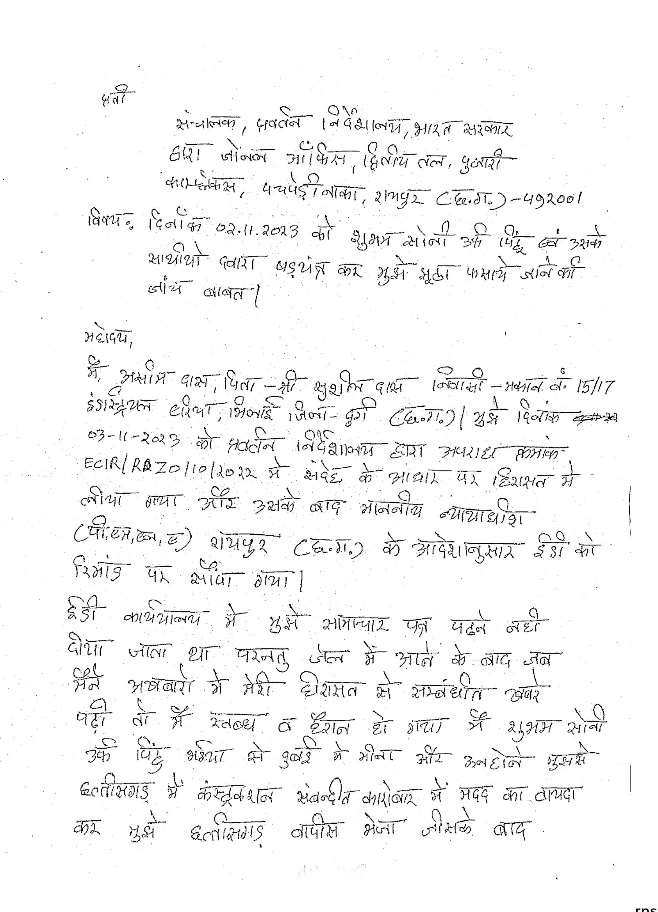 प्रती
संचालक, प्रवर्तन निर्देशालय, भारत सरकार
द्वारा जोनल ऑफिस, द्वितीय तल, पुजारी
काम्प्लेक्स, पचपेड़ी नाका, रायपुर (छ.ग.) - 492001
विषय :- दिनाँक 02.11.2023 को शुभम सोनी उर्फ पिंटू एवं उसके
साथीयो द्वारा षड़यंत्र कर मुझे झूठा फसाये जाने की
जांच बाबत।
महोदय,
मैं, असीम दास, पिता - श्री सुशील दास निवासी - मकान नं. 15/17
इंडस्ट्रियल एरिया, भिलाई जिला - दुर्ग (छ.ग.)। मुझे दिनांक
03-11-2023 को प्रवर्तन निर्देशालय द्वारा अपराध क्रमांक
ECIR/RPZO/10/2022 मे संदेह के आधार पर हिरासत मे
लीया गया और उसके बाद माननीय न्यायाधीश
(पी,एम,एल,ए) रायपुर (छ.ग.) के आदेशानुसार ईडी को
रिमांड पर सौंपा गया।
ईडी कार्ययालय मे मुझे सामाचार पत्र पढ़ने नही
दीया जाता था परन्तु जेल में आने के बाद जब
मैंने अखबारो मे मेरी हीरासत से सम्बंधीत खबरे
पढ़ी तो मैं स्तब्ध व हैरान हो गया मैं शुभम सोनी
उर्फ पिंटु भईया से दुबई मे मीला और उन्होने मुझसे
छत्तीसगढ़ में कंस्ट्रकशन संबन्दीत कारोबार में मदद का वायदा
कर मुझे छत्तीसगढ़ वापीस भेजा जीसके बाद